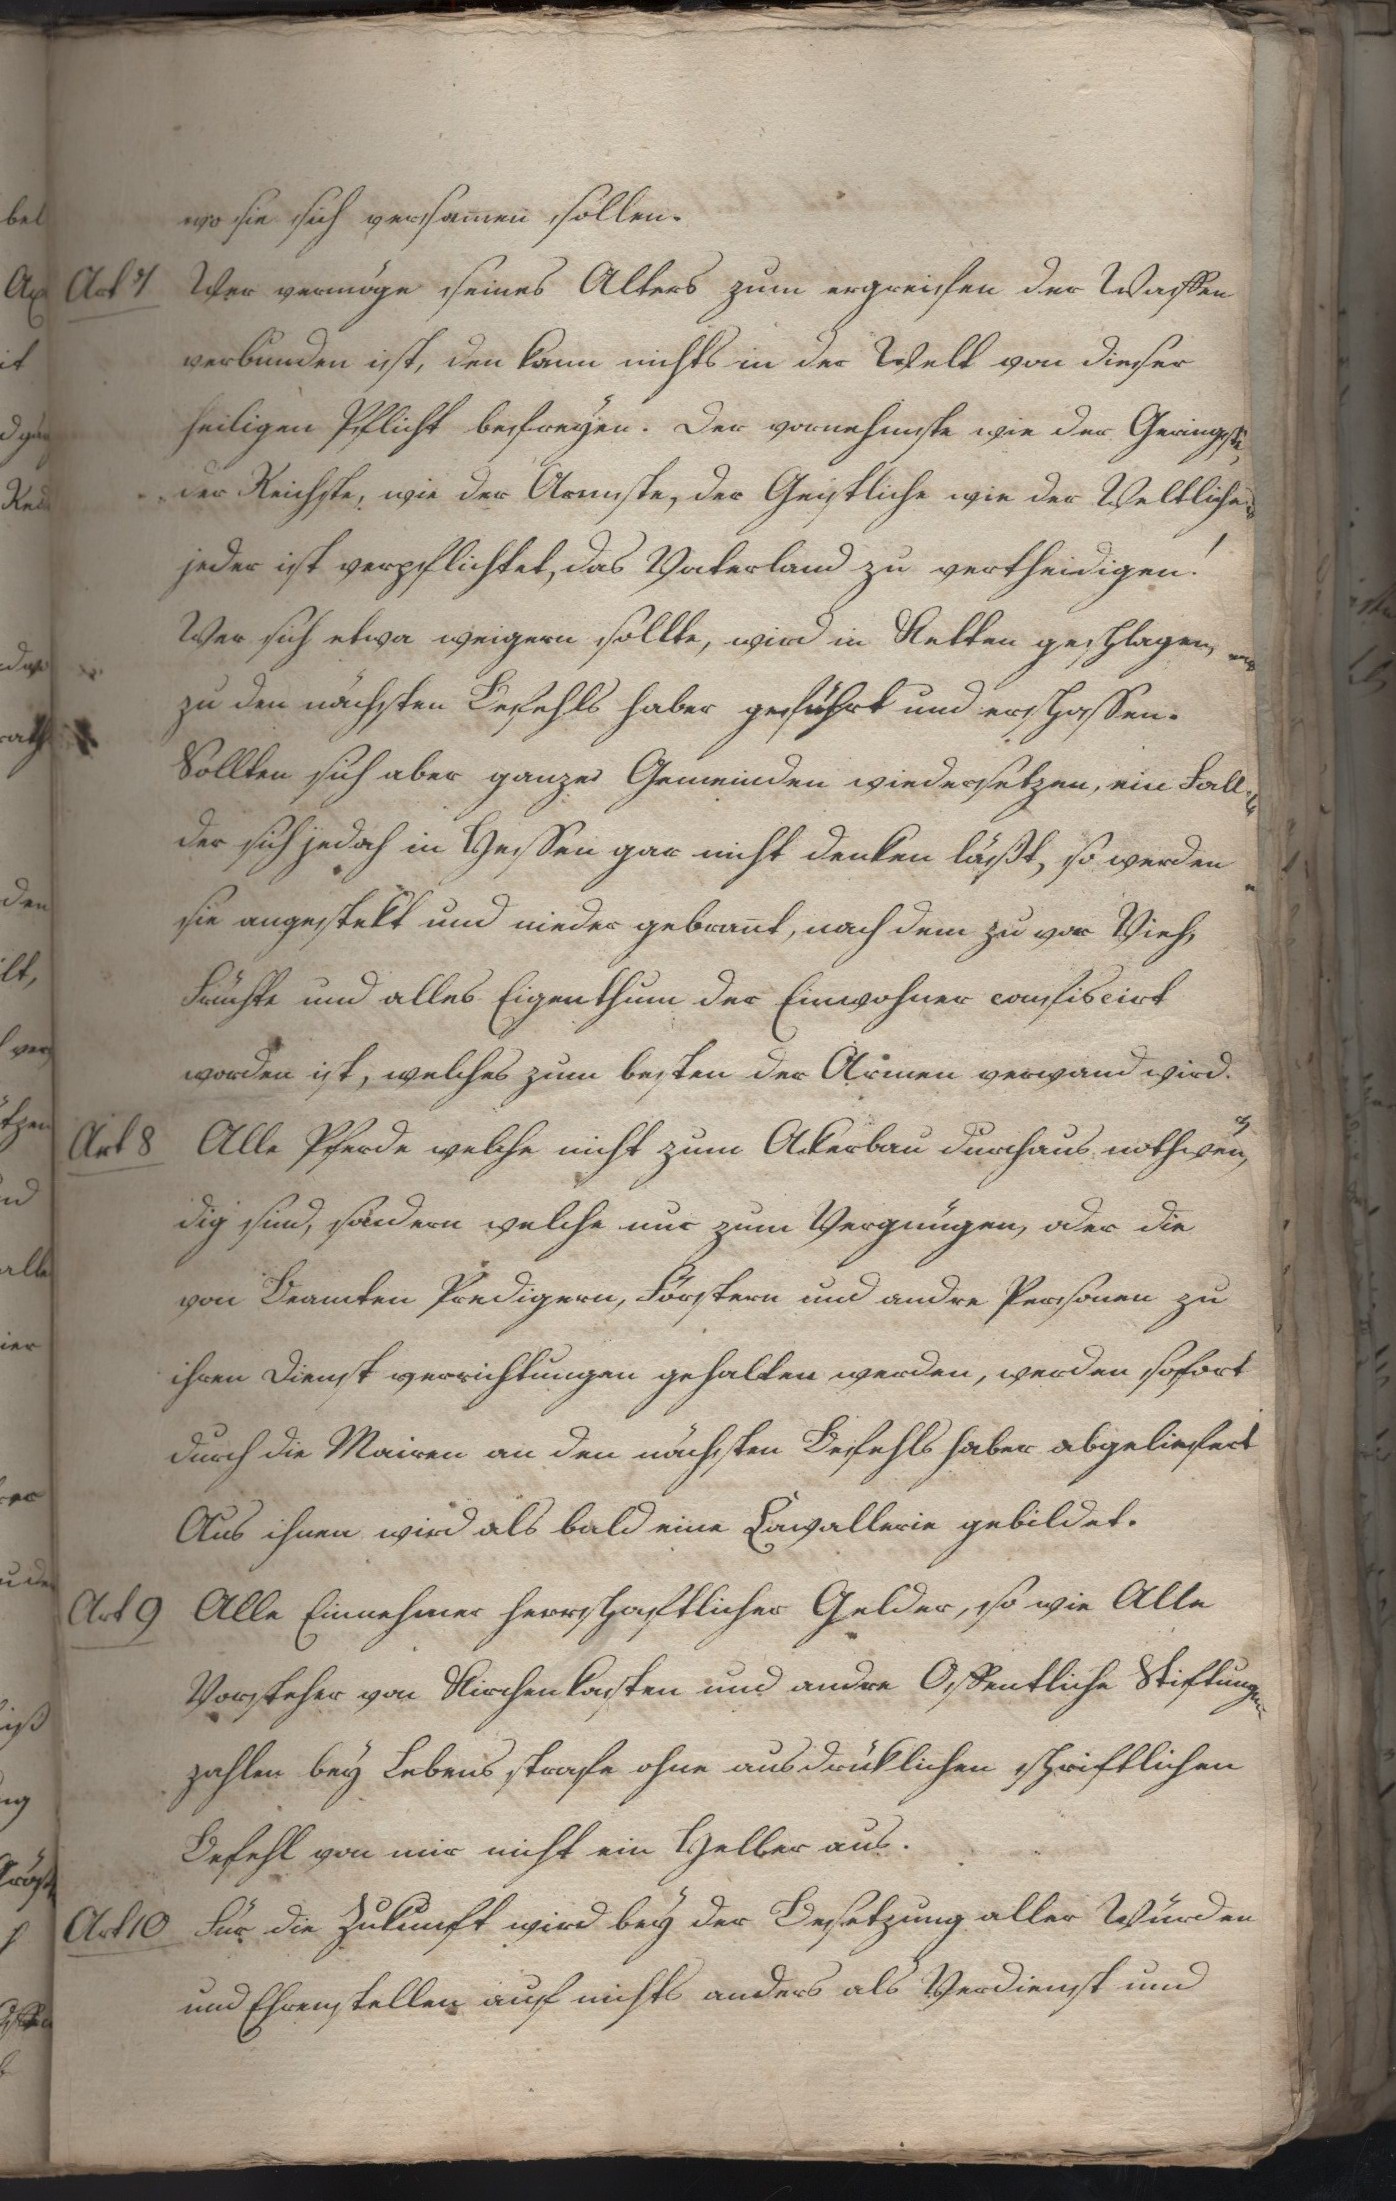 wo sie sich versam̄en sollen.
Art 7 Wer vermöge seines Alters zum ergreifen der Waffen
verbunden ist, den kann nichts in der Welt von dieser
heiligen Pflicht befreÿen. Der vornehmste wie der Geringste,
der Reichste, wie der Armste, der Geistliche wie der Weltliche
jeder ist verpflichtet, das Vaterland zu vertheidigen!
Wer sich etwa weigern sollte, wird in Ketten geschlagen,
zu den nächsten Befehls haber geführt und erschossen.
Sollten sich aber ganze Gemeinden wiedersetzen, ein Fall
der sich jedoch in Hessen gar nicht denken läßt, so werden
sie angestekt und nieder gebran̄t, nach dem zu vor Vieh,
Früchte und alles Eigenthum der Einwohner confiscirt
worden ist, welches zum besten der Armen verwand wird.
Art 8 Alle Pferde welche nicht zum Akerbau durchaus nothwen,
dig sind, sondern welche nur zum Vergnügen, oder die
von Beamten Predigern, Förstern und andre Personen zu
ihren Dienst verrichtungen gehalten werden, werden sofort
durch die Mairen an den nächsten Befehls haber abgeliefert
Aus ihnen wird als bald eine Cavallerie gebildet.
Art 9 Alle Einnehmer herrschaftlicher Gelder, so wie Alle
Vorsteher von Kirchen kasten und andre Offentliche Stiftungen
zahlen beÿ Lebens strafe ohne ausdrüklichen schriftlichen
Befehl von mir nicht ein Heller aus.
Art 10 Für die Zukunft wird beÿ der Besetzung aller Würden
und Ehrenstellen auf nichts anders als Verdienst und